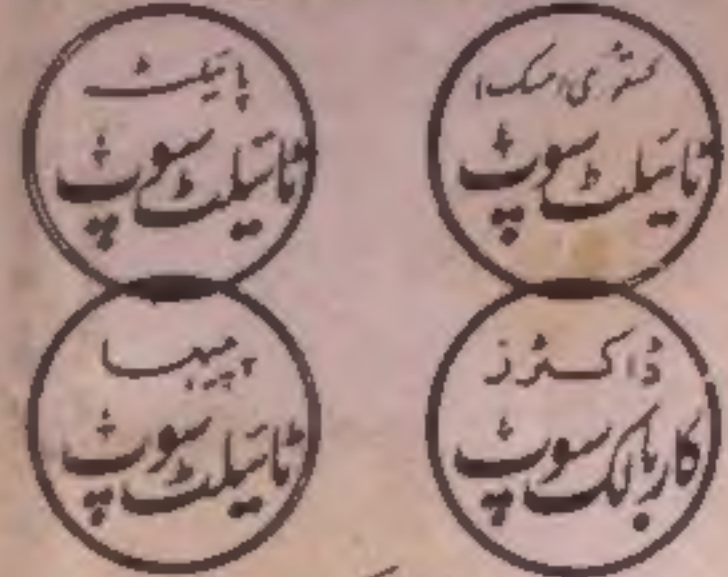 کستوری (مسک)
ٹائیلٹ سوپ
پائیلٹ
ٹائیلٹ سوپ
ڈاکٹرز
کاربالک سوپ
ٹائیلٹ سوپ